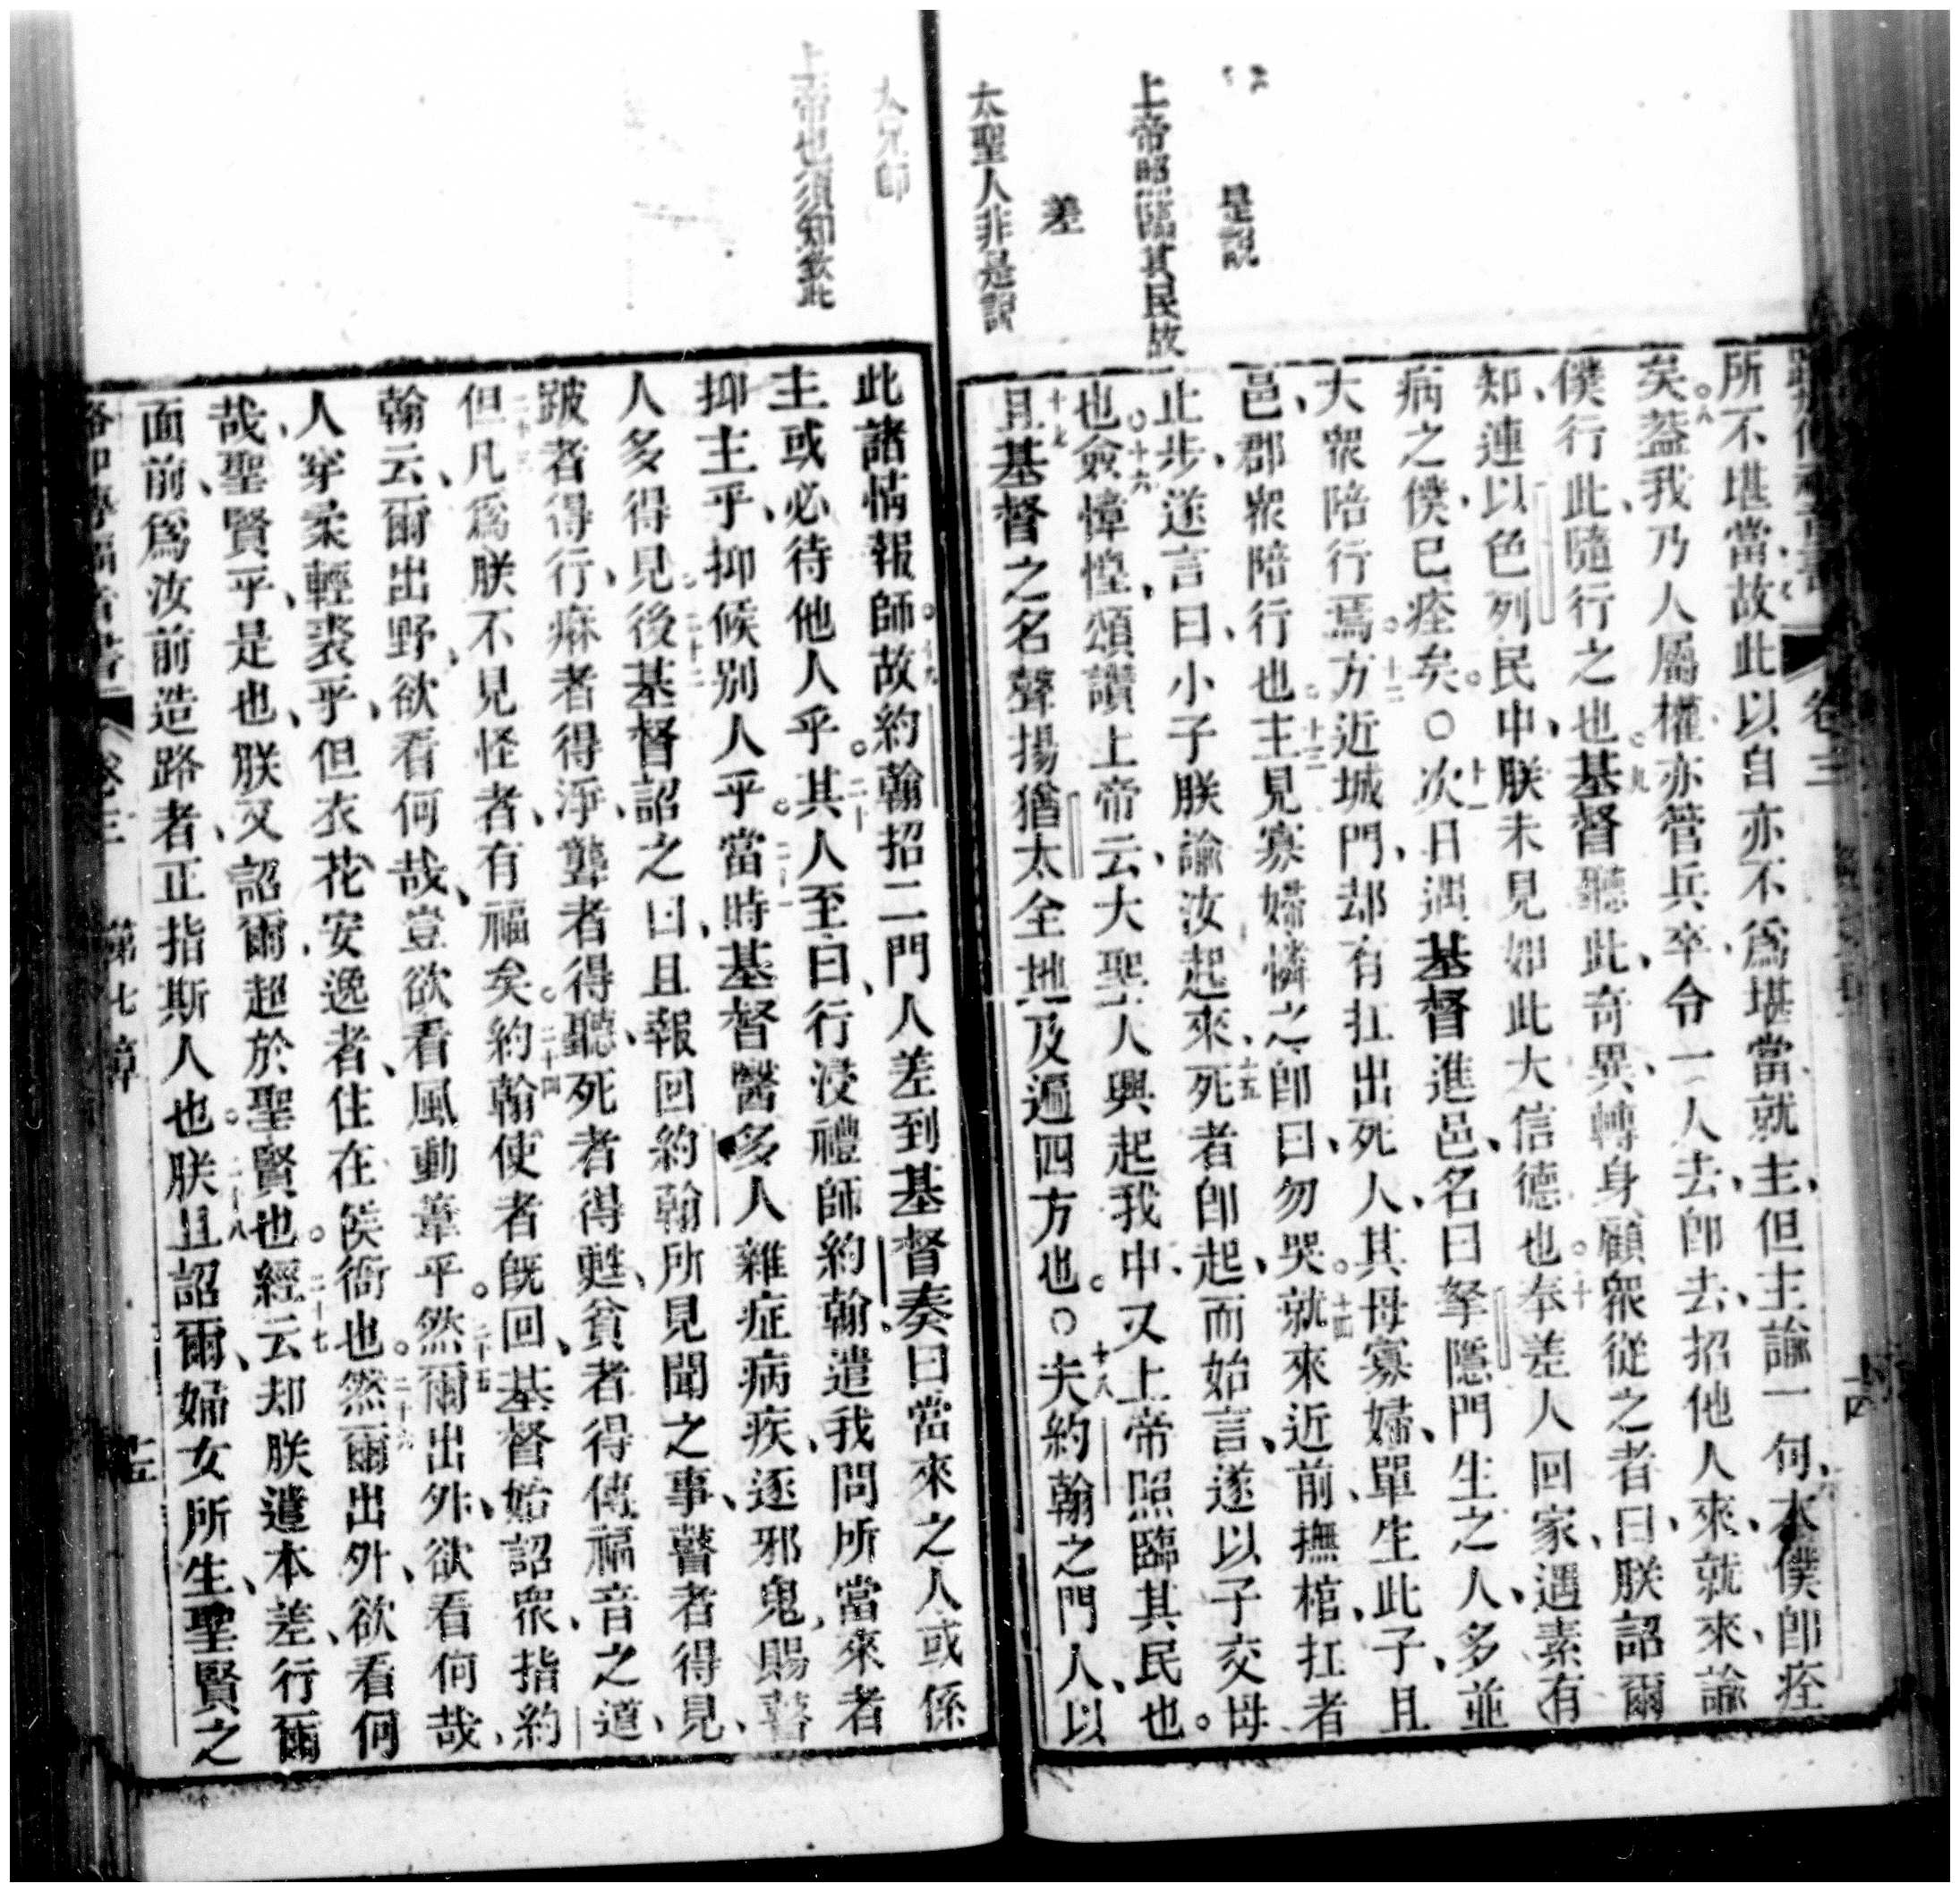 是說
上帝照臨其民故
差
太聖人非是說
卷三
所不堪當、故此以自亦不爲堪當就主、但主諭一句、本僕卽痊
矣。八蓋我乃人屬權、亦管兵卒、令一人去、卽去、招他人來、就來、諭
僕行此、隨行之也。九基督聽此奇異、轉身顧衆從之者曰、朕詔爾
知、連以色列民中、朕未見如此大信德也。十奉差人回家、遇素有
病之僕、已痊矣。〇十一次日遇基督進邑、名曰拏隱、門生之人、多並
大衆陪行焉。十二方近城門、却有扛出死人、其母寡婦、單生此子、且
邑、郡衆陪行也。十三主見寡婦憐之、卽曰、勿哭。十四就來近前、撫棺、扛者
止步、遂言曰、小子朕諭汝起來、十五死者卽起、而始言、遂以子交母
也。十六僉慞惶、頌讚上帝云、大聖人興起我中、又上帝照臨其民也。
十七且基督之名聲揚猶太全地、及遍四方也。〇十八夫約翰之門人、以
大兄師
上帝也須知欽此
此諸情報師。十九故約翰招二門人、差到基督奏曰、當來之人或係
主、或必待他人乎。二十其人至曰、行浸禮師約翰、遣我問所當來者
抑主乎、抑候別人乎。二十一當時基督醫多人雜症病疾、逐邪鬼、賜瞽
人多得見。二十二後基督詔之曰、且報回約翰所見聞之事、瞽者得見、
跛者得行、痳者得淨、聾者得聽、死者得甦、貧者得傳福音之道、
二十三但凡爲朕不見怪者、有福矣。二十四約翰使者旣回、基督始詔衆、指約
翰云、爾出野、欲看何哉、豈欲看風動葦乎。二十五然爾出外、欲看何哉、
人穿柔輕裘乎、但衣花安逸者、住在侯衙也。二十六然爾出外、欲看何
哉、聖賢乎、是也、朕又詔爾超於聖賢也。二十七經云、却朕遣本差、行爾
面前、爲汝前造路者、正指斯人也。二十八朕且詔爾、婦女所生、聖賢之
卷三 第七章 十五